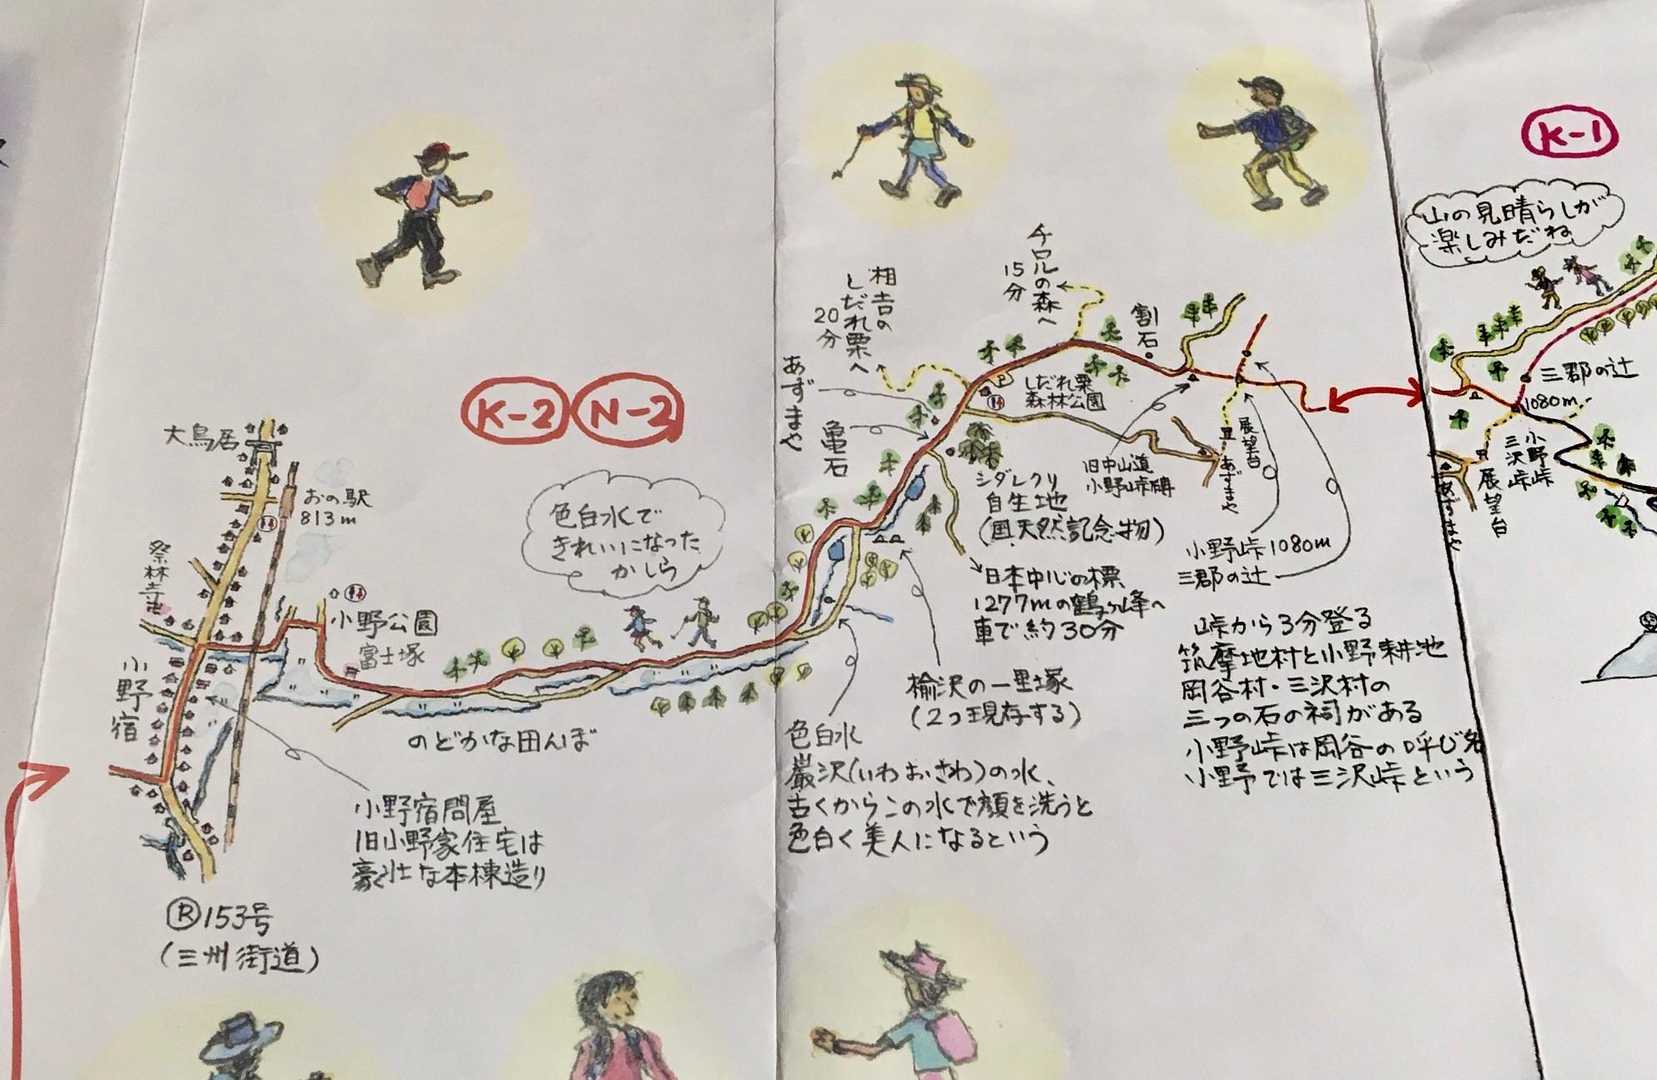 K-2
N-2
大鳥居
おの駅
813m
祭林寺
小野公園
富士塚
小野宿
色白水で
きれいになった
かしら
のどかな田んぼ
小野宿問屋
旧小野家住宅は
豪壮な本棟造り
Ⓡ153号
(三州街道)
チロルの森へ
15分
相吉の
しだれ栗へ
20分
あずまや
亀石
割石
P
しだれ栗
森林公園
シダレクリ
自生地
(国天然記念物)
旧中山道
小野峠碑
展望台
あずまや
日本中心の標
1277mの鶴ヶ峰へ
車で約30分
小野峠1080m
三郡の辻
楡沢の一里塚
(2つ現存する)
色白水
巌沢(いわおさわ)の水、
古くからこの水で顔を洗うと
色白く美人になるという
峠から3分登る
筑摩地村と小野耕地
岡谷村・三沢村の
三つの石の祠がある
小野峠は岡谷の呼び名
小野では三沢峠という
K-1
山の見晴らしが
楽しみだね
三郡の辻
1080m
小野峠
三沢峠
展望台
あずまや